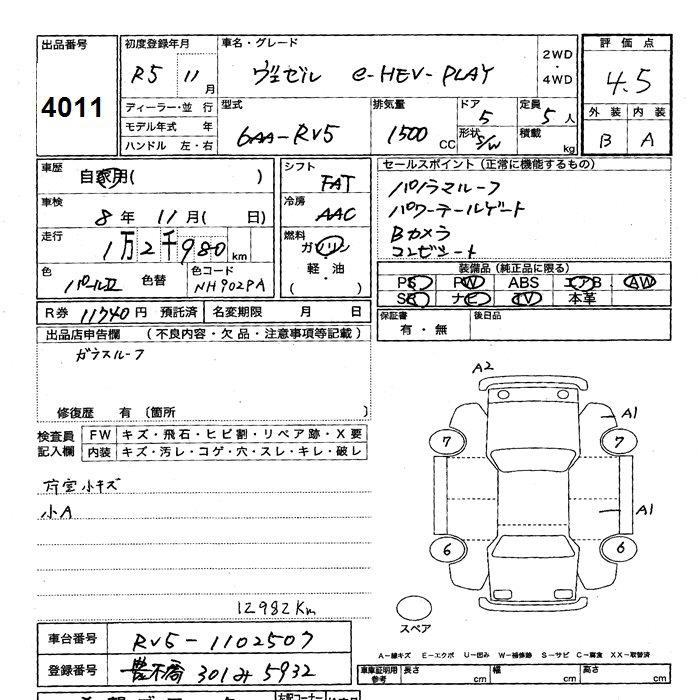 出品番号
4011
初度登録年月
R5 11 月
車名・グレード
ヴェゼル e-HEV-PLAY
2WD
・
4WD
評価点
4.5
外装 内装
B A
ディーラー・並 行
モデル年式 年
ハンドル 左・右
型式
6AA-RV5
排気量
1500 CC
ドア
5
形状
S/W
定員
5人
積載
kg
車歴
自家用( )
車検
8年 11月( 日)
走行
1万2千980 km
色
パールII
色替
色コード
NH902PA
シフト
FAT
冷房
AAC
燃料
ガソリン
・
軽・油
( )
セールスポイント(正常に機能するもの)
パノラマルーフ
パワーテールゲート
Bカメラ
コンビシート
装備品(純正品に限る)
PS PW ABS エアB AW
SR ナビ TV 本革
R券 11740円 預託済 名変期限 月 日
保証書
有・無
後日品
出品店申告欄 (不良内容・欠品・注意事項等記載)
ガラスルーフ
修復歴 有 〔箇所 〕
検査員
記入欄
FW キズ・飛石・ヒビ割・リペア跡・X要
内装 キズ・汚レ・コゲ・穴・スレ・キレ・破レ
荷室小キズ
小A
12982Km
A2
A1
7 7
A1
6 6
スペア
A−線キズ E−エクボ U−凹み W−補修跡 S−サビ C−腐食 XX−取替済
車台番号 RV5-1102507
登録番号 豊橋 301み5932
車庫証明用
参考
長さ cm 幅 cm 高さ cm